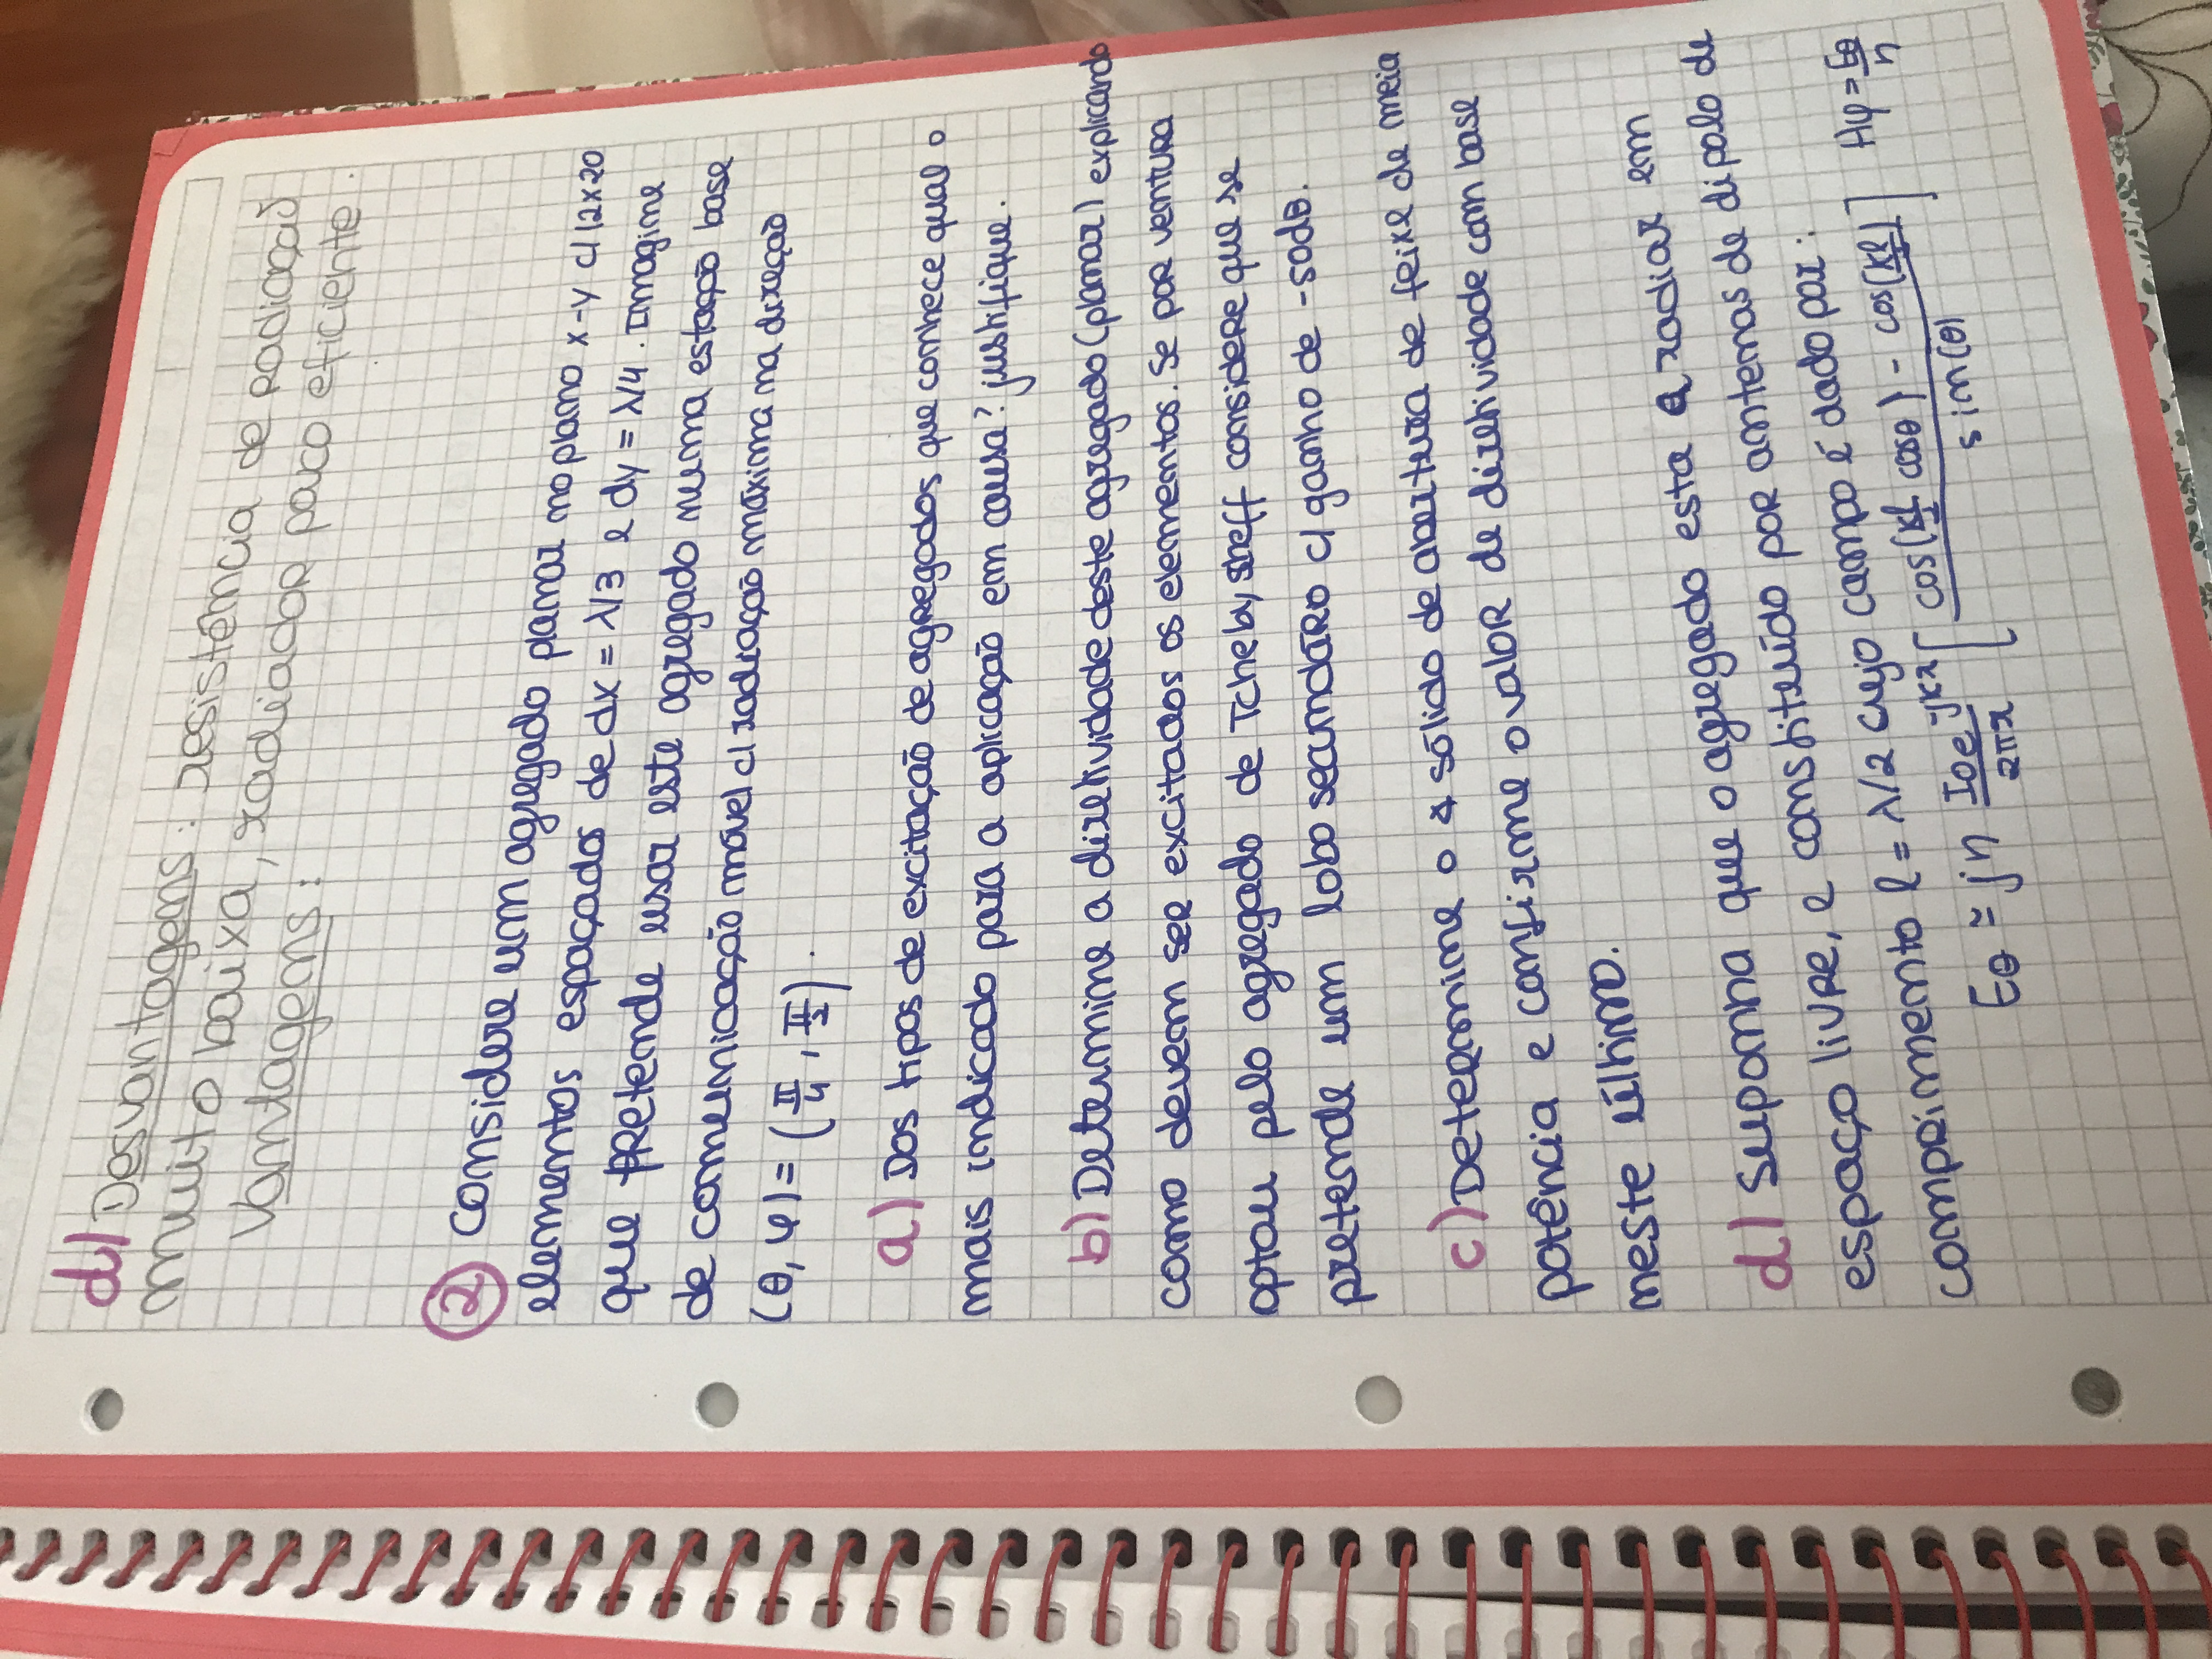 d) Desvantagens: resistência de Radiação
muito baixa, radiador pouco eficiente.
Vantagens:
② Considere um agregado planar no plano x-y c/ 12x20
elementos espaçados de dx = λ/3 e dy = λ/4. Imagine
que pretende usar este agregado numa estação base
de comunicação móvel c/ radiação máxima na direção
(θ, φ) = (π/4, π/2).
a) Dos tipos de excitação de agregados que conhece qual o
mais indicado para a aplicação em causa? justifique.
b) Determine a diretividade deste agregado (planar) explicando
como devem ser excitados os elementos. Se por ventura
optou pelo agregado de Tchebysheff considere que se
pretende um lobo secundáro c/ ganho de -50dB.
c) Determine o ∢ sólido de abertura de feixe de meia
potência e confirme o valor de diretividade com base
neste último.
d) Suponha que o agregado esta a radiar em
espaço livre, e constituído por antenas de dipolo de
comprimento l = λ/2 cujo campo é dado por:
Eθ ≃ jη (I0e^-jkr / 2πr) [(cos(kl/2 cosθ) - cos(kl/2)) / sin(θ)] Hφ = Eθ/η